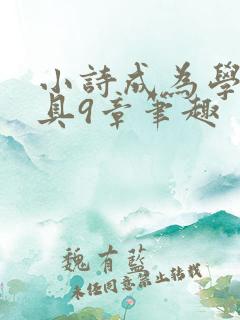 小詩成為學
具9章筆趣
魏有藍
未任同意禁止转载